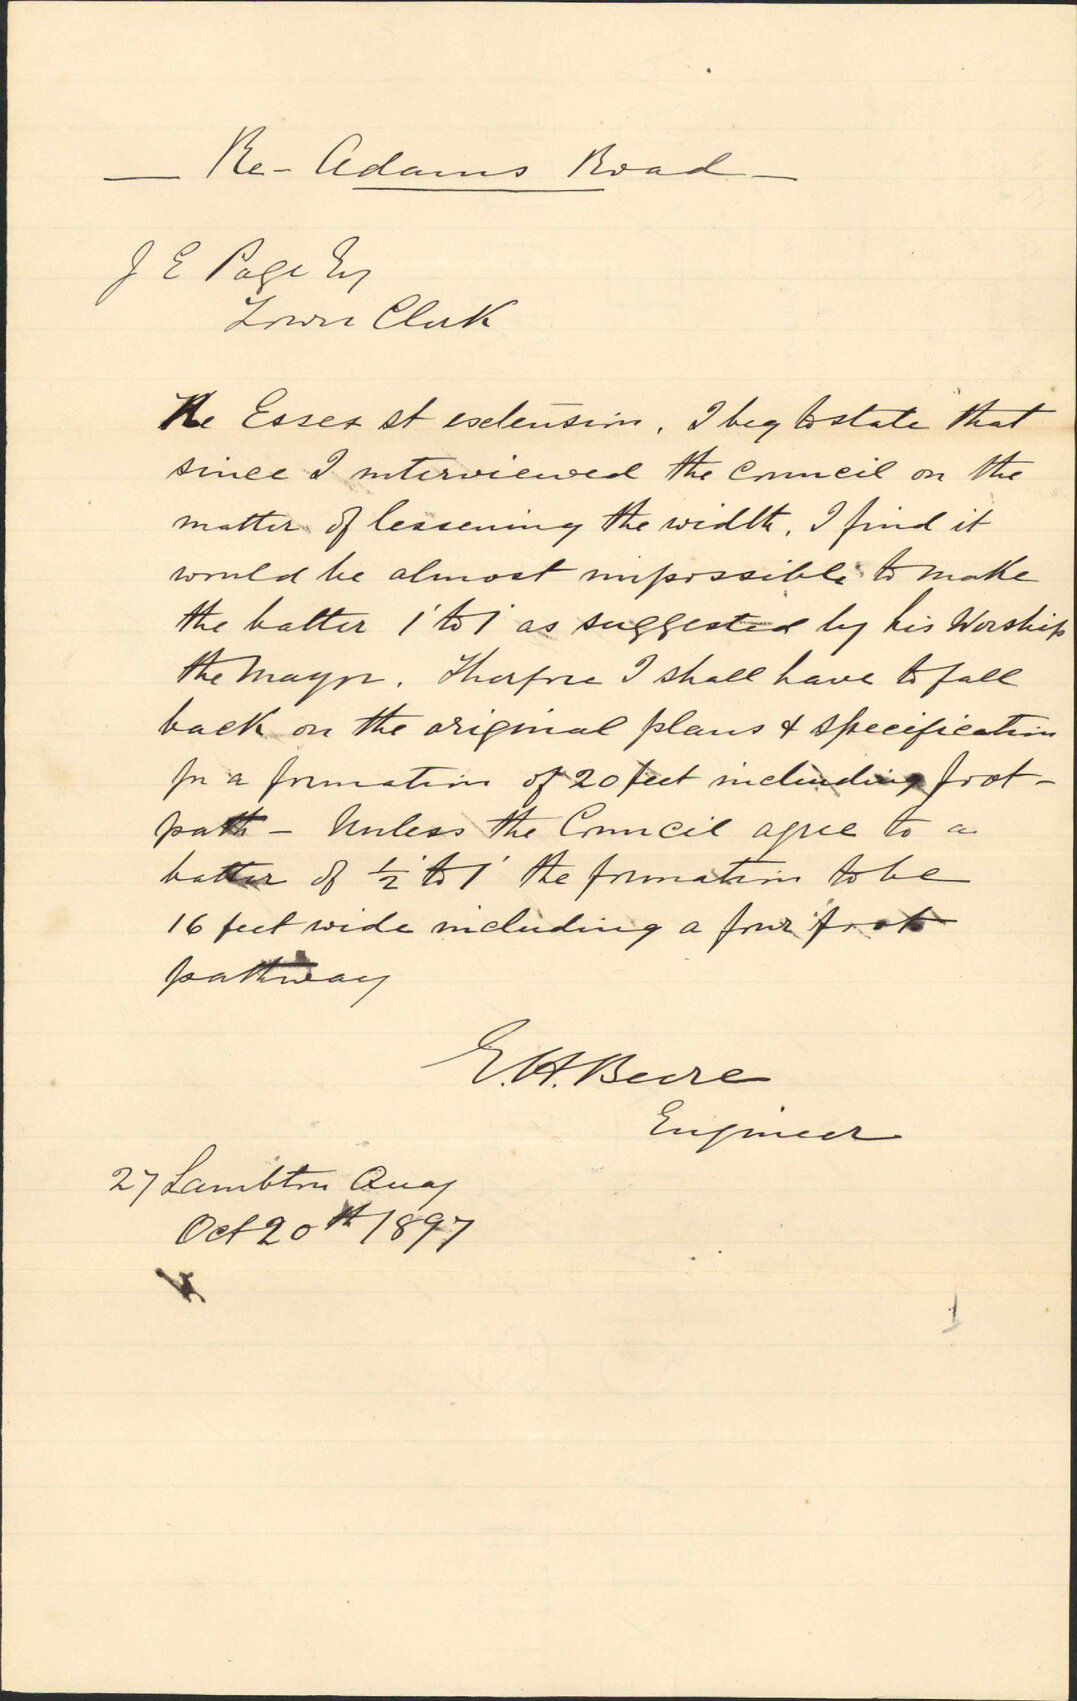 — Re - Adams Road —
J E Page Esq
Town Clerk
Re Essex st extension, I beg to state that
since I interviewed the Council on the
matter of lessening the width, I find it
would be almost impossible to make
the batter 1' to 1' as suggested by his Worship
the Mayor. Therfore I shall have to fall
back on the original plans & specification
for a formation of 20 feet including foot-
path - Unless the Council agree to a
batter of ½' to 1' the formation to be
16 feet wide including a four foot
pathway
E.H. Beere
Engineer
27 Lambton Quay
Oct 20th 1897